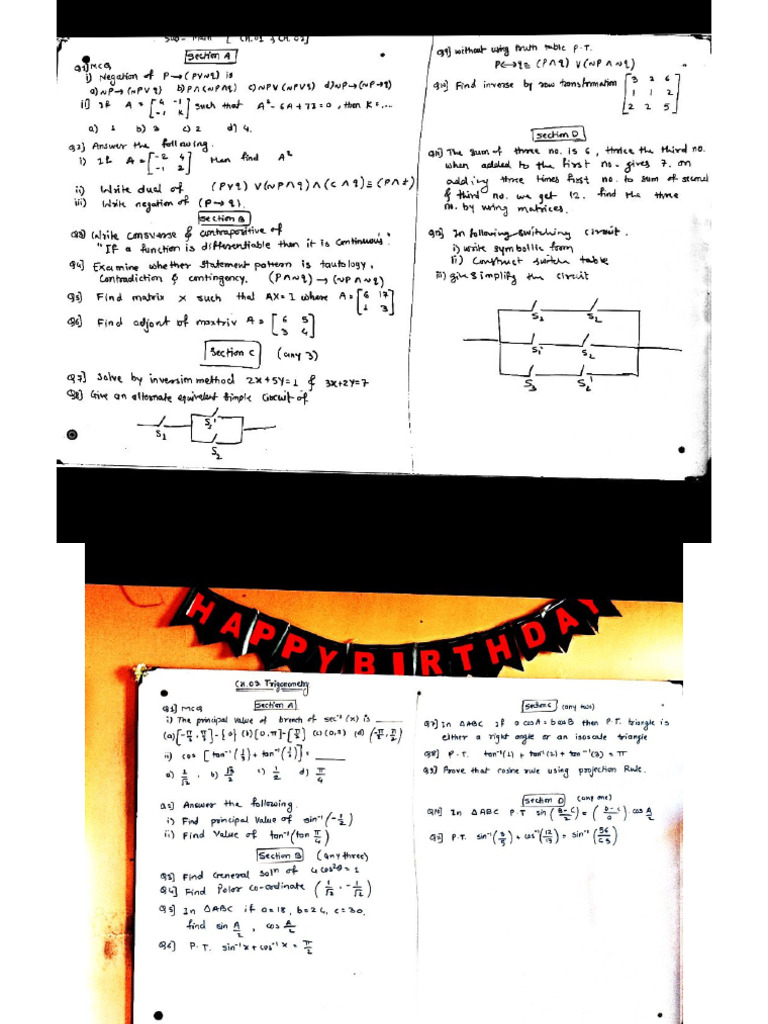 Sub- Math [ CH.01 & CH.02]
Section A
Q1] MCQ
i) Negation of P→(PV~q) is
a) ~P→(~PVq) b) P∧(~P∧q) c) ~PV(~PV~q) d) ~P→(~P→q)
ii] If A = [4 -1 -1 k] such that A² - 6A + 7I = 0, then K = ...
a) 1 b) 3 c) 2 d) 4.
Q2] Answer the following.
i) If A = [-2 4 -1 2] then find A²
ii) Write dual of (PVq) V(~P∧q)∧(c∧q) ≡ (P∧t)
iii) Write negation of (P→q).
Section B
Q3] Write converse & contrapositive of
"If a function is differentiable then it is continuous".
Q4] Examine whether statement pattern is tautology,
Contradiction & contingency. (P∧~q) → (~P∧~q)
Q5] Find matrix x such that AX = I where A = [6 17 1 3]
Q6] Find adjoint of maxtriv A = [6 5 3 4]
Section C (any 3)
Q7] Solve by inversim method 2x+5y=1 & 3x+2y=7
Q8] Give an alternate equivalent simple circuit of
S1 S1' S2
Q9] without using truth table P.T.
P↔q ≡ (P∧q) V(~P∧~q)
Q10] Find inverse by row transformation [3 2 6 1 1 2 2 2 5]
Section D
Q11] The sum of three no. is 6, thrice the third no.
when added to the first no. gives 7. on
adding three times first no. to sum of second
& third no. we get 12. find the three
no. by using matrices.
Q12] In following switching circuit.
i) write symbollic form
ii) Construct switch table
iii) give simplify the circuit
S1 S2
S1' S2
S3 S2'
HAPPY BIRTHDAY
CH.03 Trigonometry
Section A
Q1] MCQ
i) The principal value of branch of sec⁻¹(x) is ____
(a) [-π/2, π/2] - {0} (b) [0, π] - {π/2} (c) (0, π) (d) (-π/2, π/2)
ii) cos [tan⁻¹(1/3) + tan⁻¹(1/2)] = ____
a) 1/√2, b) √3/2 c) 1/2 d) π/4
Q2] Answer the following.
i) Find principal value of sin⁻¹(-1/2)
ii) Find Value of tan⁻¹(tan π/4)
Section B (any three)
Q3] Find General Solⁿ of 4cos²θ = 1
Q4] Find Polar Co-ordinate (1/√2, -1/√2)
Q5] In ΔABC if a=18, b=24, c=30,
find sin A/2, cos A/2
Q6] P.T. sin⁻¹x + cos⁻¹x = π/2
Section C (any two)
Q7] In ΔABC If a cosA = b cosB then P.T. triangle is
either a right angle or an isoscale triangle
Q8] P.T. tan⁻¹(1) + tan⁻¹(2) + tan⁻¹(3) = π
Q9] Prove that cosine rule using projection Rule.
Section D (any one)
Q10] In ΔABC P.T sin(B-C/2) = (b-c/a) cos A/2
P.T. sin⁻¹(3/5) + cos⁻¹(12/13) = sin⁻¹(56/65)